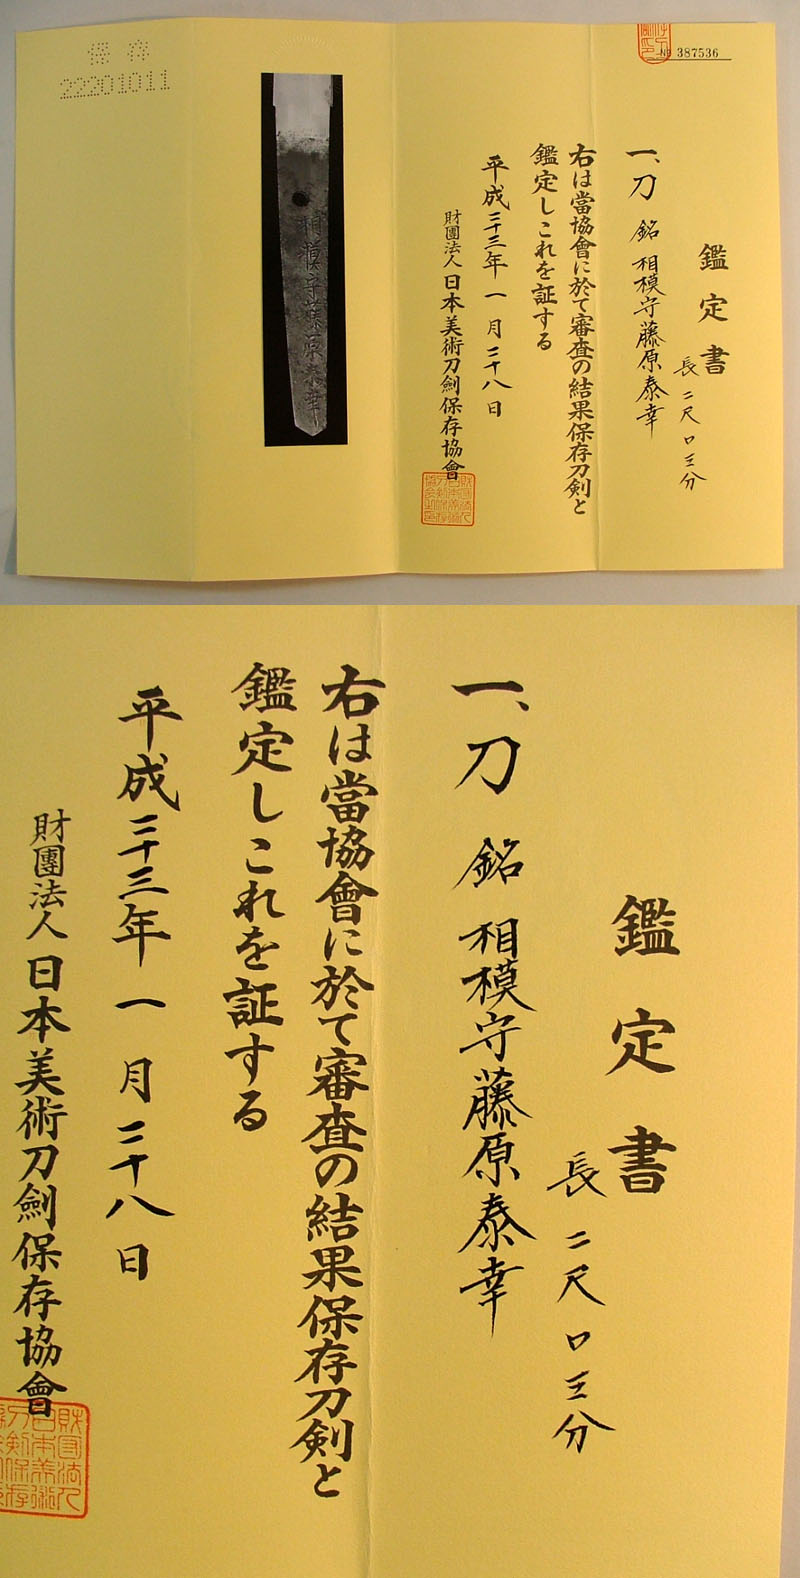 № 387536
鑑定書
長二尺口三分
一、刀 銘 相模守藤原泰幸
右は當協會に於て審査の結果保存刀剣と
鑑定しこれを証する
平成二十三年一月二十八日
財團法人日本美術刀劍保存協會
相模守藤原泰幸
保存
22201011
鑑定書
長二尺口三分
一、刀 銘 相模守藤原泰幸
右は當協會に於て審査の結果保存刀剣と
鑑定しこれを証する
平成二十三年一月二十八日
財團法人日本美術刀劍保存協會